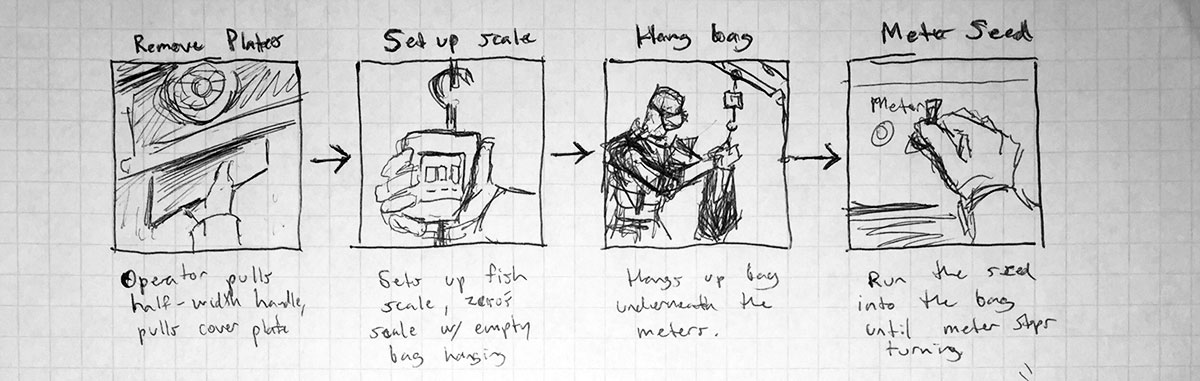 Remove Plates
Operator pulls
half-width handle,
pulls cover plate
Set up scale
Sets up fish
scale, zero's
scale w/ empty
bag hanging
Hang bag
Hangs up bag
underneath the
meters.
Meter Seed
Meter
Run the seed
into the bag
until meter stops
turning